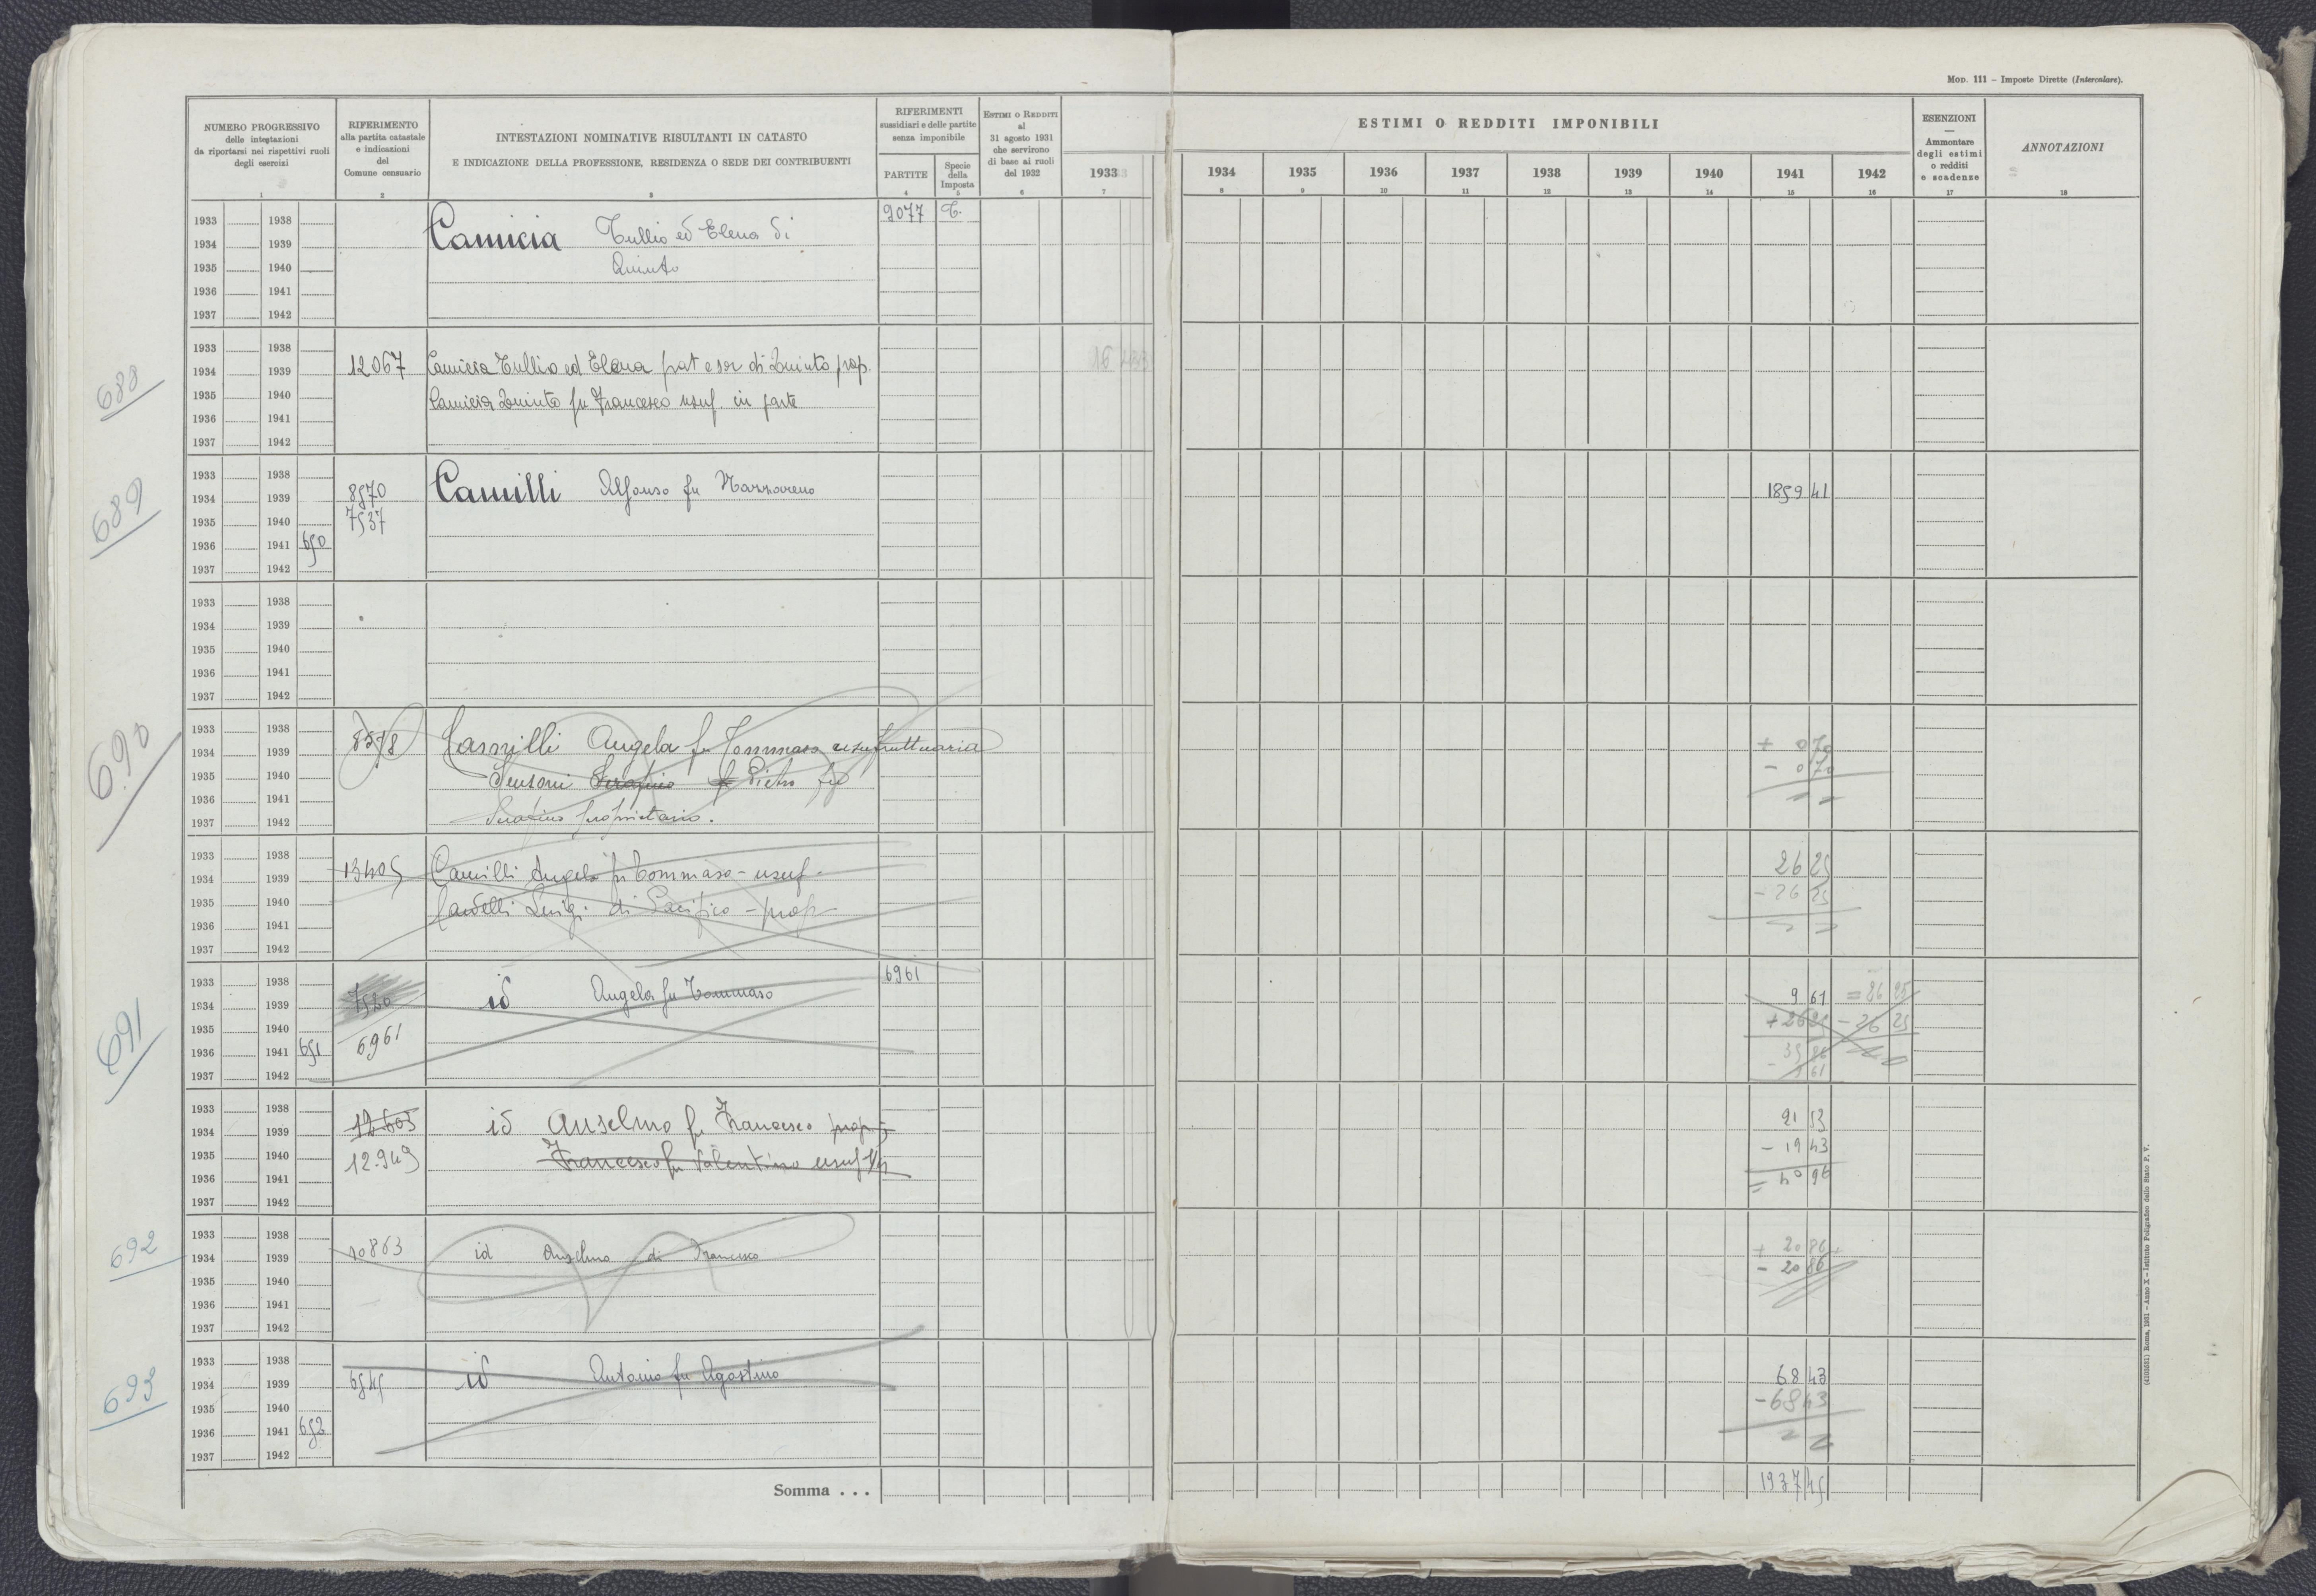 MOD. 111 – Imposte Dirette (Intercolare).
NUMERO PROGRESSIVO
delle intestazioni
da riportarsi nei rispettivi ruoli
degli esercizi
1
RIFERIMENTO
alla partita catastale
e indicazioni
del
Comune censuario
2
INTESTAZIONI NOMINATIVE RISULTANTI IN CATASTO
E INDICAZIONE DELLA PROFESSIONE, RESIDENZA O SEDE DEI CONTRIBUENTI
3
RIFERIMENTI
sussidiari e delle partite
senza imponibile
PARTITE
4
Specie
della
Imposta
5
ESTIMI O REDDITI
al
31 agosto 1931
che servirono
di base ai ruoli
del 1932
6
1933
7
ESTIMI O REDDITI IMPONIBILI
1934 1935 1936 1937 1938 1939 1940 1941 1942
8 9 10 11 12 13 14 15 16
ESENZIONI
—
Ammontare
degli estimi
o redditi
e scadenze
17
ANNOTAZIONI
18
1933 1938 9077 T.
1934 1939 Camicia Tullio ed Elena di
1935 1940 Quinto
1936 1941
1937 1942
688
1933 1938
1934 1939 12067 Camicia Tullio ed Elena frat e sor di Quinto prop.
1935 1940 Camicia Quinto fu Francesco usuf. in parte
1936 1941
1937 1942
689
1933 1938
1934 1939 8570 Camilli Alfonso fu Nazzareno 1859 41
1935 1940 7537
1936 1941 650
1937 1942
1933 1938
1934 1939
1935 1940
1936 1941
1937 1942
690
1933 1938
1934 1939 Camilli Angela fu Tommaso usufruttuaria + 0 70
1935 1940 Sensoni Serafino Pietro fu - 0 70
1936 1941
1937 1942 Serafino proprietario.
1933 1938
1934 1939 13405 Camilli Angela fu Tommaso - usuf. 26 25
1935 1940 Luigi di Pacifico - prop - 26 25
1936 1941
1937 1942
691
1933 1938 6961
1934 1939 7520 id Angela fu Tommaso 9 61
1935 1940 + 26 25 - 26 25
1936 1941 651 6961
1937 1942
1933 1938
1934 1939 12.603 id Anselmo fu Francesco prop. 21 53
1935 1940 12.949 Francesco fu Valentino usuf - 19 43
1936 1941 = 40 96
1937 1942
692
1933 1938
1934 1939 10863 id Anselmo di Francesco + 20 86
1935 1940 - 20 86
1936 1941
1937 1942
693
1933 1938
1934 1939 6545 id Antonio fu Agostino 68 43
1935 1940 - 68 43
1936 1941 652
1937 1942
Somma . . . 1937 45
(4100531) Roma, 1931 – Anno X – Istituto Poligrafico dello Stato P. V.